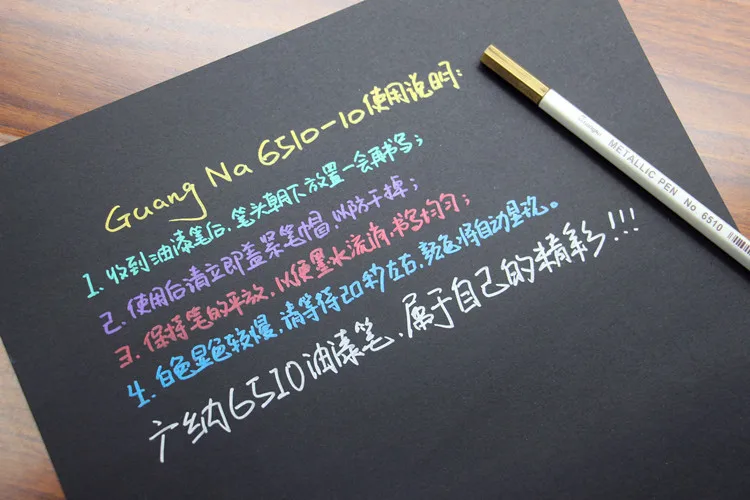 Guang Na 6510-10使用说明:
1. 收到油漆笔后,笔头朝下放置一会再书写;
2. 使用后请立即盖紧笔帽,以防干掉;
3. 保持笔的平放,以便墨水流淌,书写均匀;
4. 白色显色较慢,请等待20秒左右,颜色将自动显现。
广纳6510油漆笔,属于自己的精彩!!!
METALLIC PEN No 6510